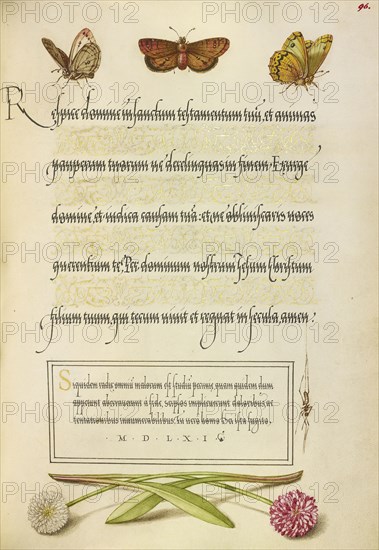 96.
Respice domine in sanctum testamentum tuũ, et animas
pauperum tuorum ne derelinquas in finem. Exurge
domine, et iudica causam tuã: et ne obliuiscaris uoces
querentium te. Per dominum nostrum Jesum Christum
filium tuum, qui tecum uiuit et regnat in secula, amen:
Siquidem radix omniũ malorum est studiũ pecuniæ, quam quidem dum
appetunt aberrauerunt a fide, seipsos implicuerunt doloribus, ac
tentationibus innumerabilibus. Tu uero homo Dei ista fugito.
M D LXI